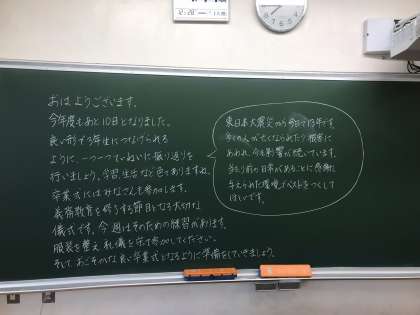 おはようございます。
今年度もあと10日となりました。
良い形で3年生につなげられる
ように、一つ一つていねいに振り返りを
行いましょう。学習、生活など色々ありますね。
卒業式にはみなさんも参加します。
義務教育を修了する節目となる大切な
儀式です。今週はそのための練習があります。
服装を整え、礼儀を守って参加してください。
そして、おごそかな良い卒業式となるように準備をしていきましょう。
東日本大震災から今日で13年です。
多くの人が亡くなられたり、被害に
あわれ、今も影響が続いています。
当たり前の日常があることに感謝し
与えられた環境でベストをつくして
ほしいです。